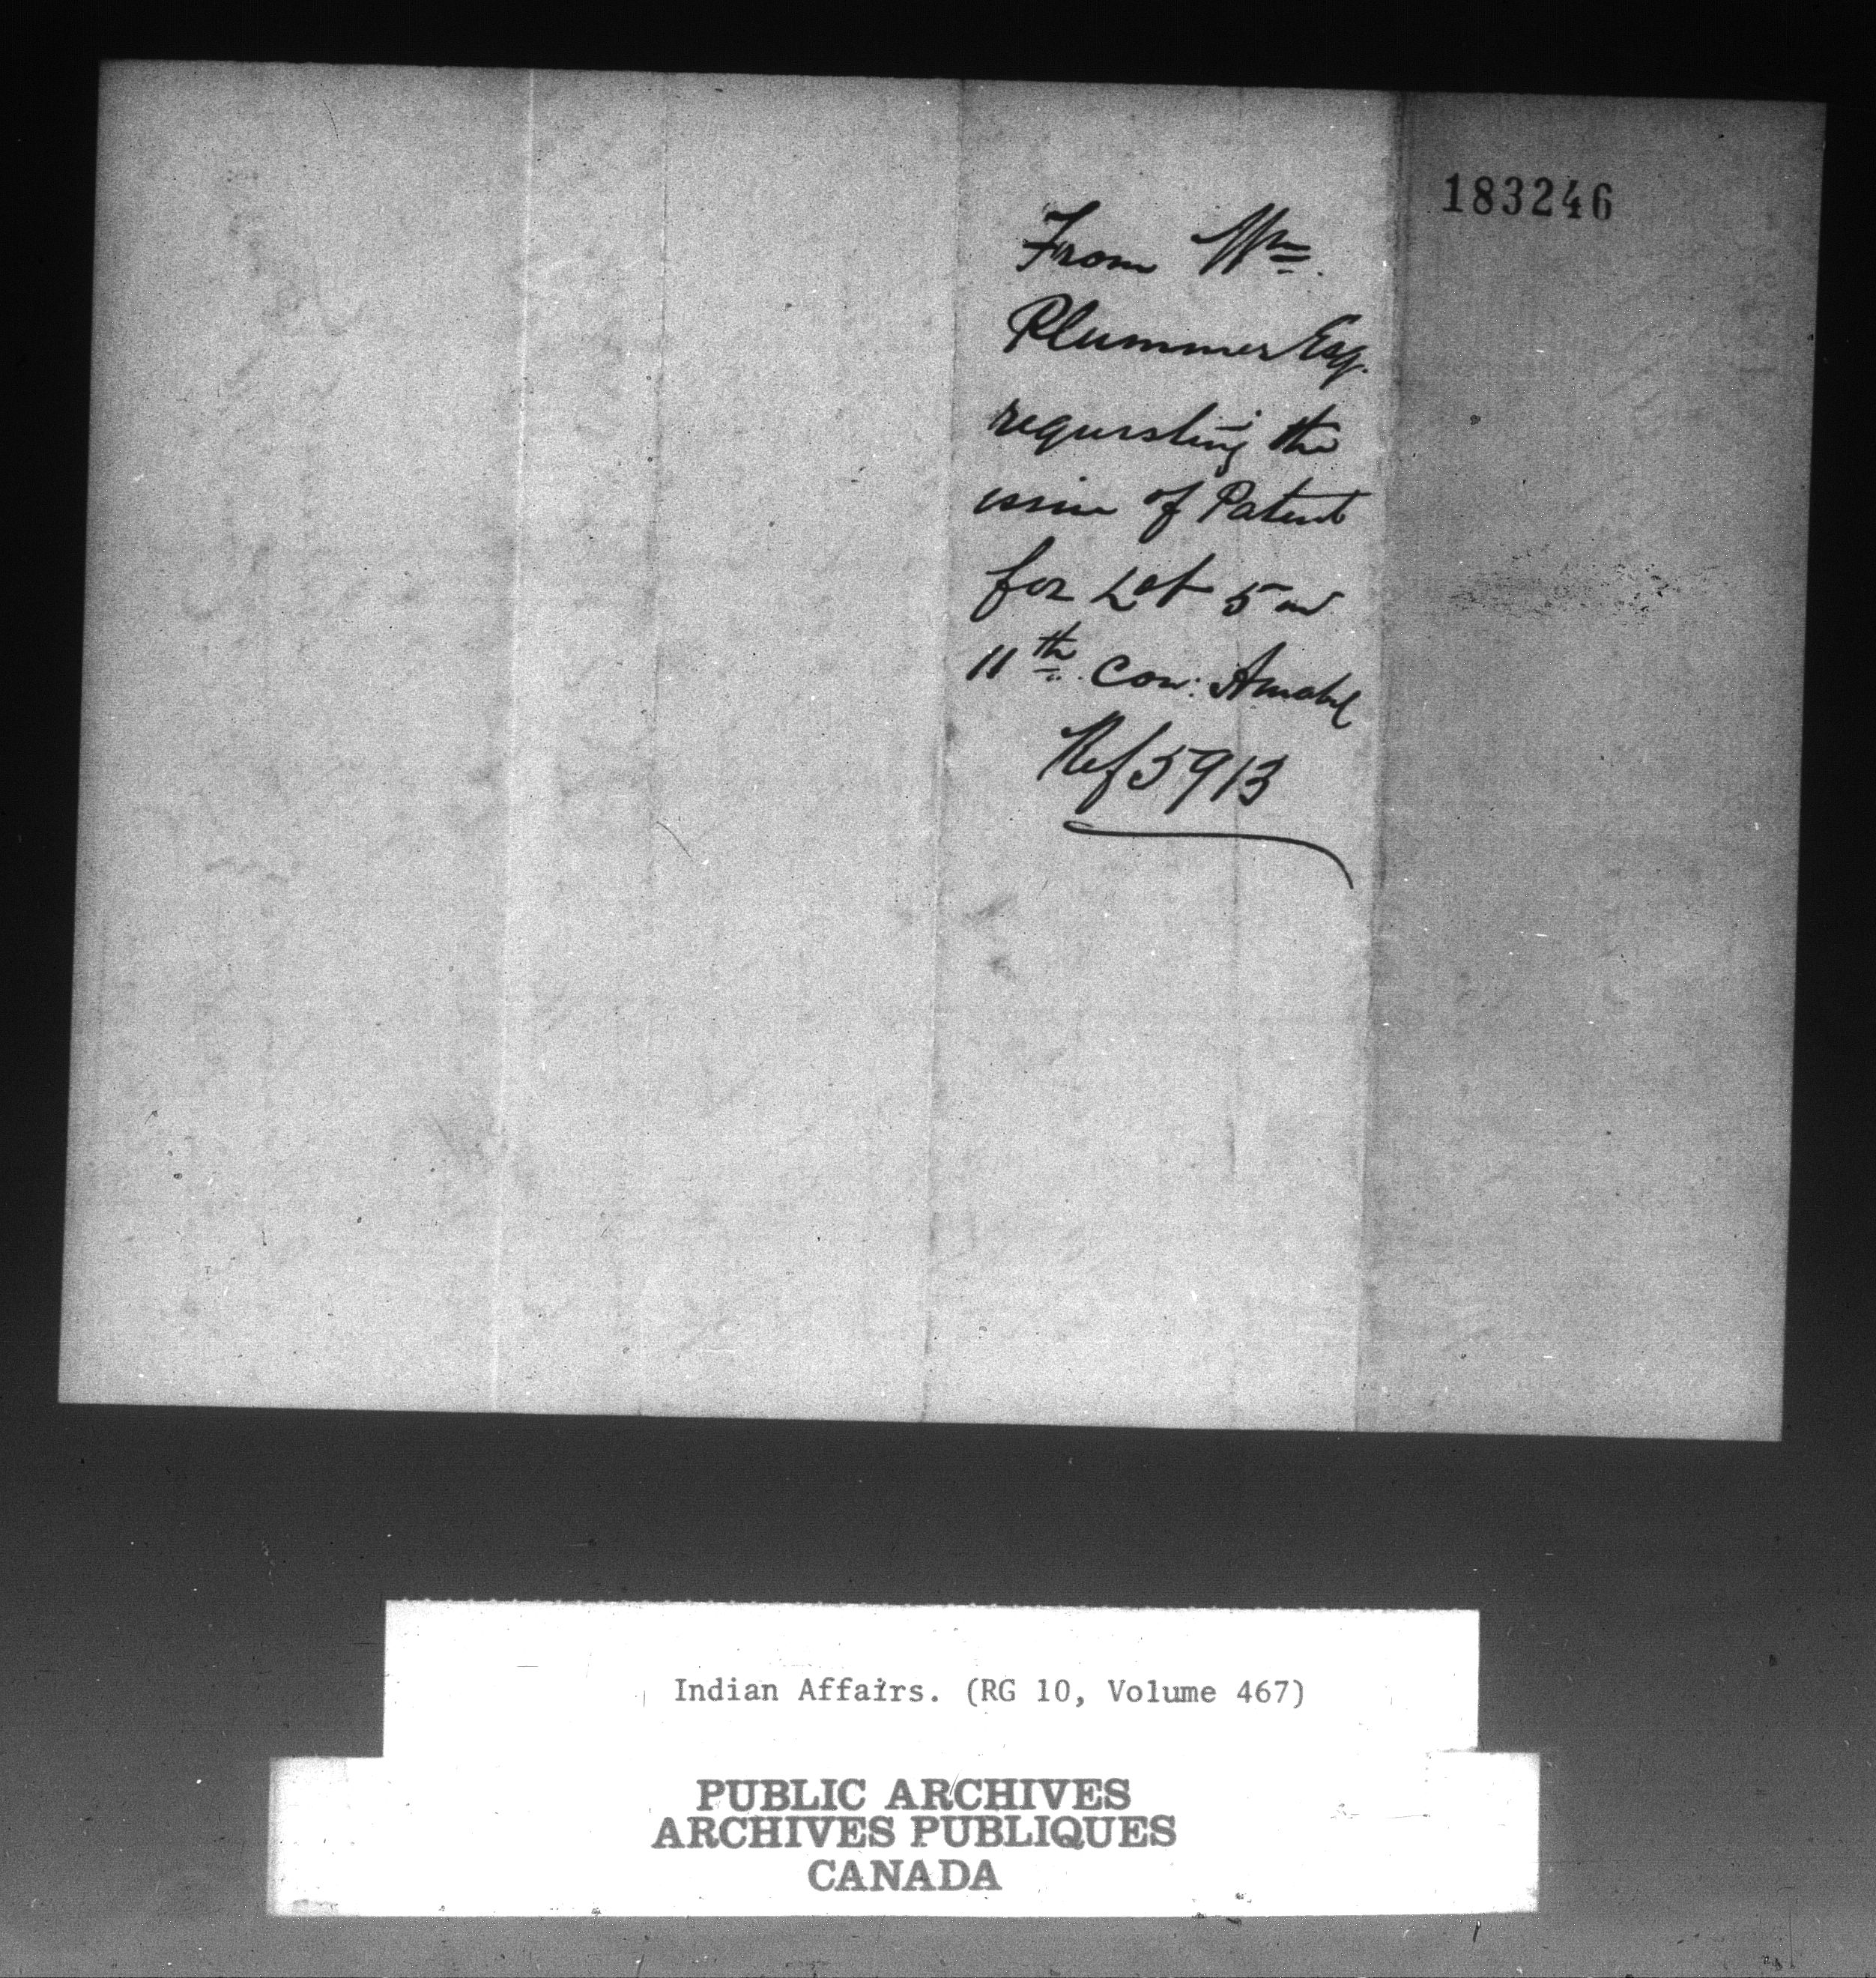 183246
From Wm.
Plummer Esq.
requesting the
issue of Patent
for Lot 5 in
11th Con: Amabel
Ref 5913
Indian Affairs. (RG 10, Volume 467)
PUBLIC ARCHIVES
ARCHIVES PUBLIQUES
CANADA